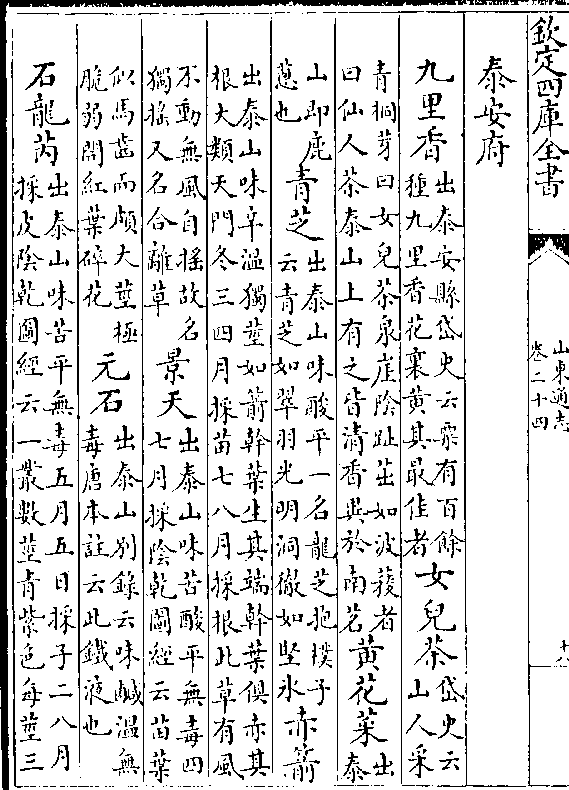 欽定四庫全書
山東通志
卷二十四
十八
泰安府
九里香
出泰安縣岱史云藥有百餘
種九里香花裏黃其最佳者
女兒茶
岱史云
山人采
青桐芽曰女兒茶泉崖陰趾茁如波薐者
曰仙人茶泰山上有之皆清香異於南茗
黃花菜
出
泰
山即鹿
蔥也
青芝
出泰山味酸平一名龍芝抱樸子
云青芝如翠羽光明洞徹如堅氷
赤箭
出泰山味辛溫獨莖如箭幹葉生其端幹葉俱赤其
根大類天門冬三四月採苗七八月採根此草有風
不動無風自搖故名
獨搖又名合離草
景天
出泰山味苦酸平無毒四
七月採陰乾圖經云苗葉
似馬齒而頗大莖極
脆弱開紅葉碎花
元石
出泰山别錄云味鹹溫無
毒唐本註云此鐵液也
石龍芮
出泰山味苦平無毒五月五日採子二八月
採皮陰乾圖經云一叢數莖青紫色每莖三